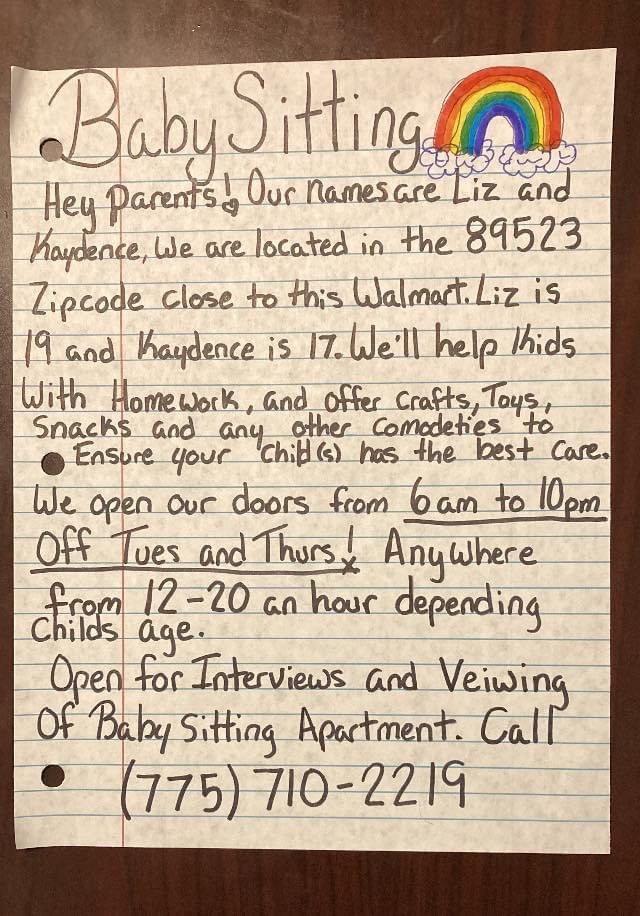 Baby Sitting
Hey Parents! Our names are Liz and
Kaydence, We are located in the 89523
Zipcode close to this Walmart. Liz is
19 and Kaydence is 17. We'll help kids
With Homework, and offer Crafts, Toys,
Snacks and any other Comodeties to
Ensure your Child(s) has the best Care.
We open our doors from 6am to 10pm
Off Tues and Thurs! Anywhere
from 12-20 an hour depending
Childs age.
Open for Interviews and Veiwing
Of Baby Sitting Apartment. Call
(775) 710-2219